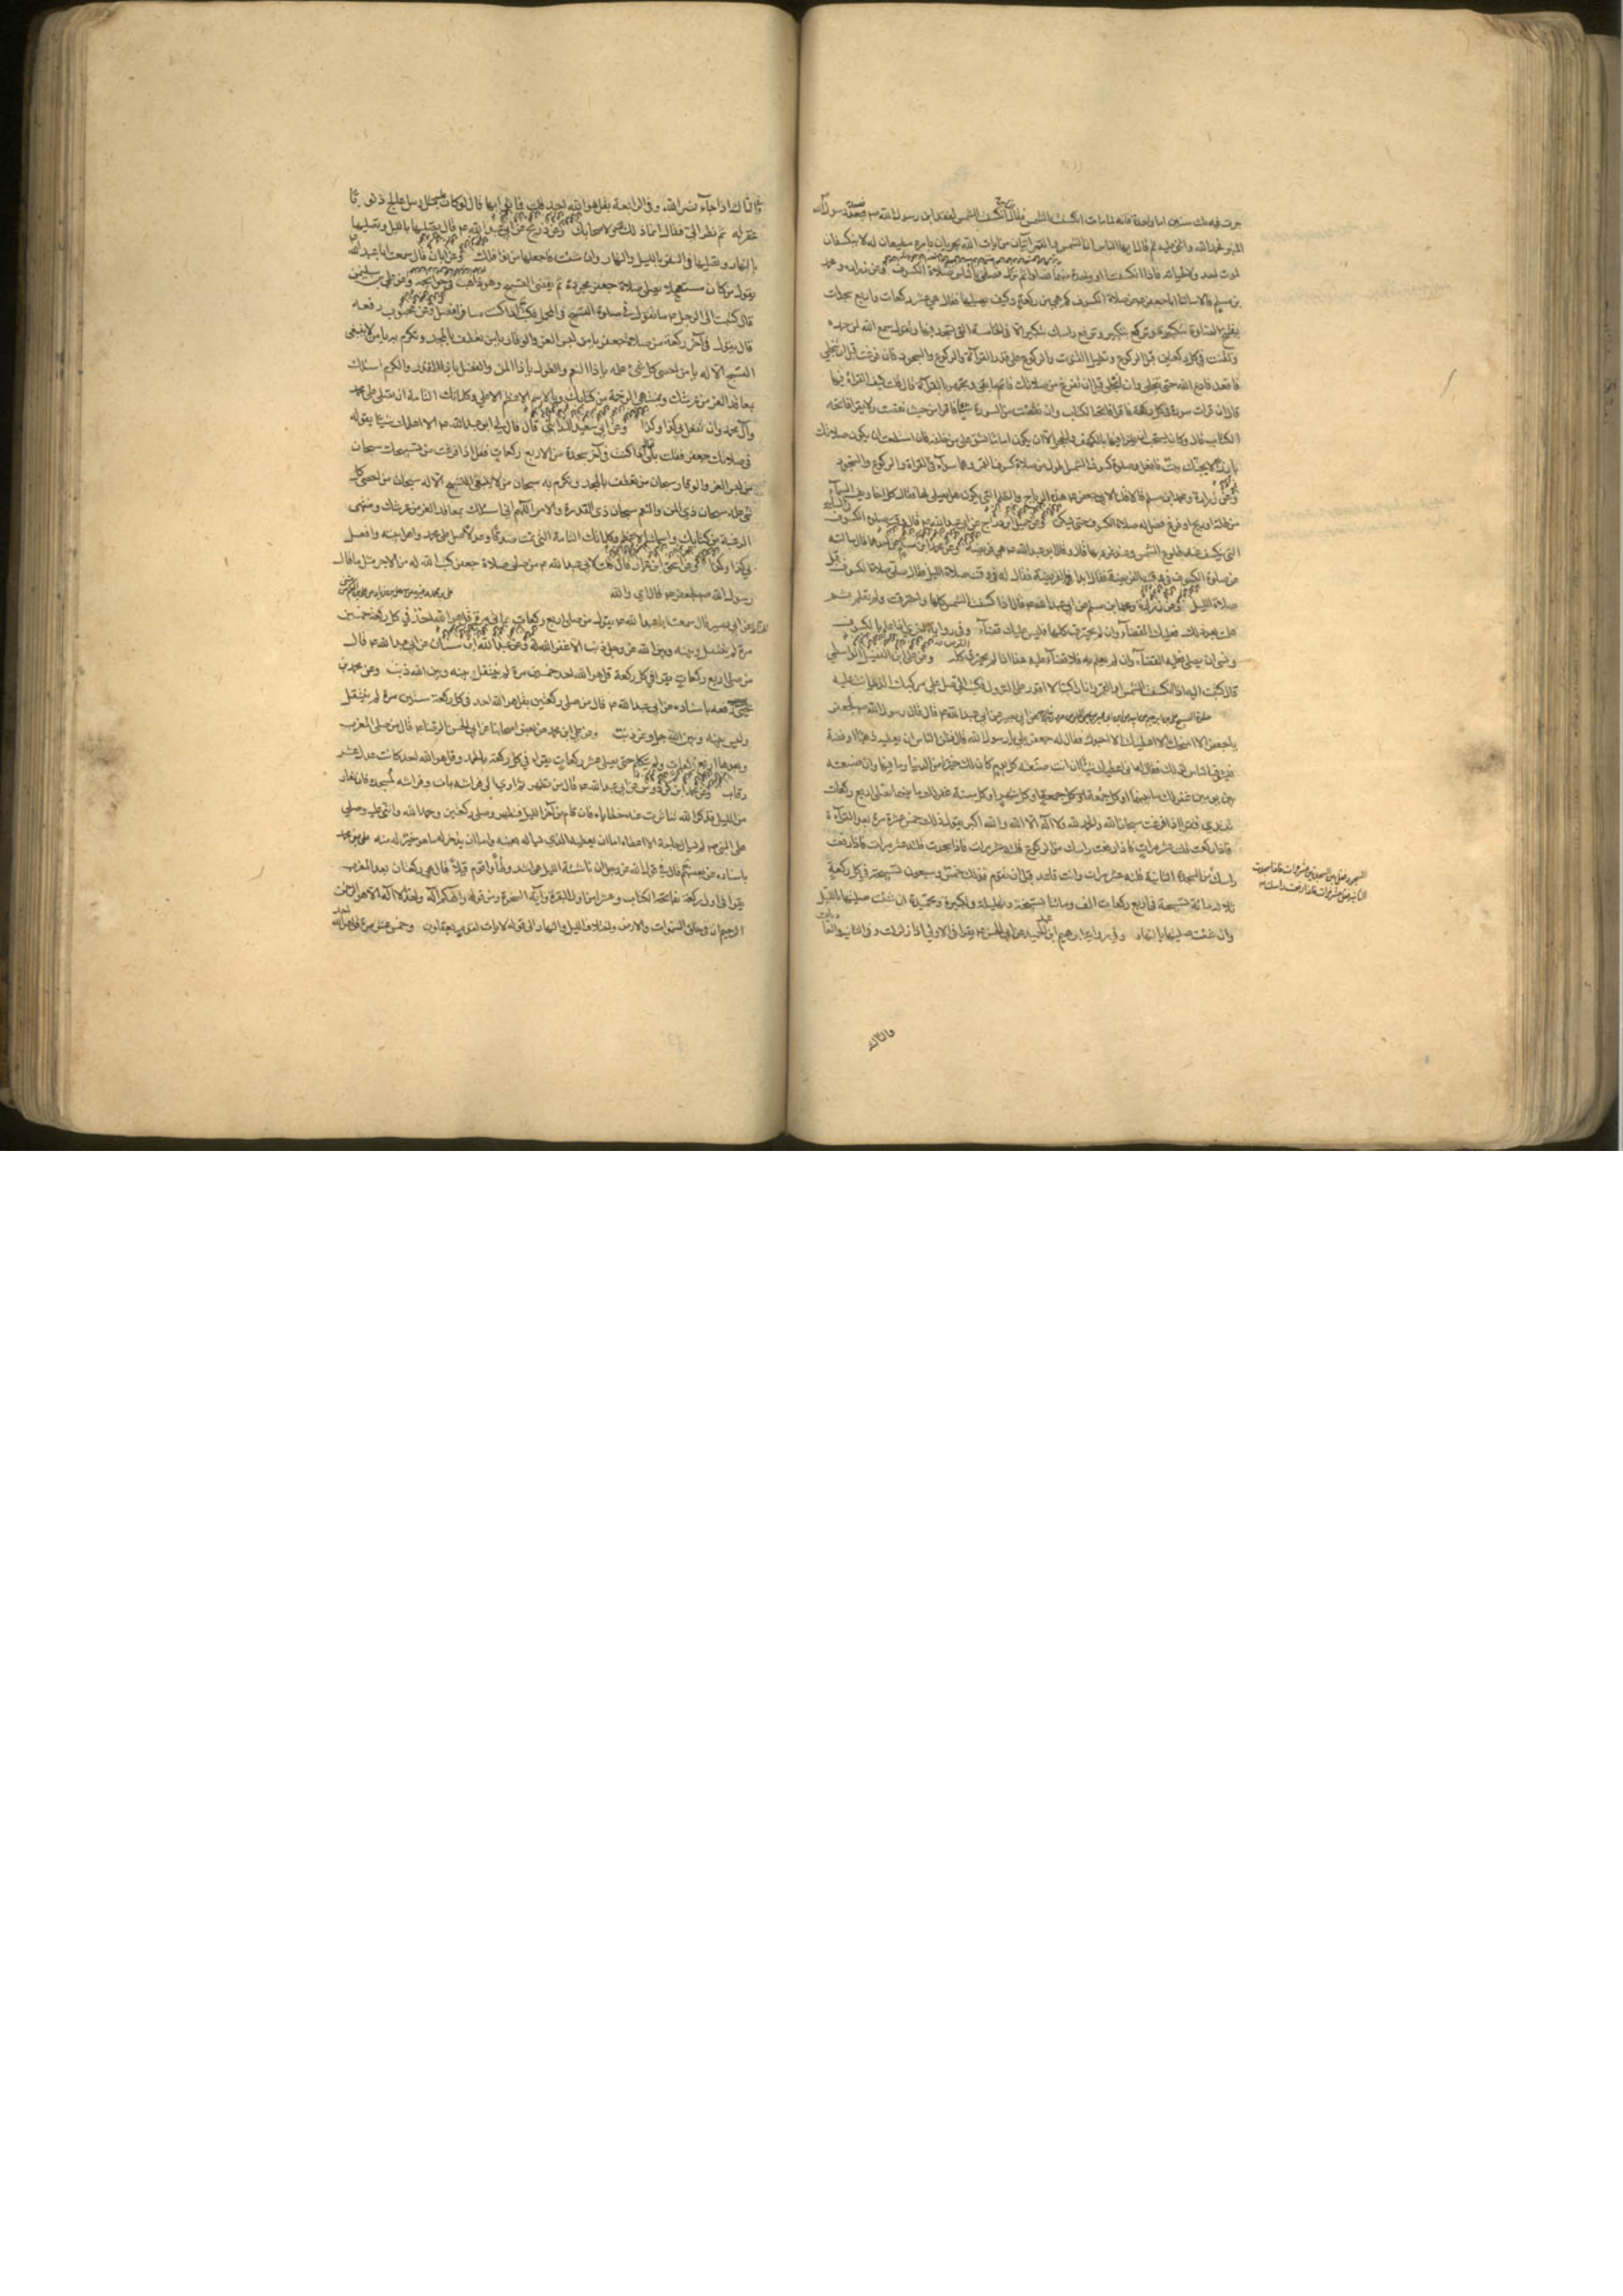 جرت فيه ثلث سنن اما واحدة فانه لما مات انكسفت الشمس فقال الناس انكسفت الشمس لفقد ابن رسول الله ص فصعد رسول الله
المنبر فحمد الله واثنى عليه ثم قال يا ايها الناس ان الشمس والقمر آيتان من آيات الله تجريان بامره مطيعان له لا ينكسفان
لموت احد ولا لحياته فاذا انكسفتا او واحدة منهما فصلوا ثم نزل فصلى بالناس صلاة الكسوف وعن زرارة ومحمد
بن مسلم قالا سالنا ابا جعفر ع عن صلاة الكسوف كم هي من ركعة وكيف نصليها فقال هي عشر ركعات واربع سجدات
يفتتح الصلوة بتكبيرة وتركع بتكبير وترفع راسك بتكبير الا في الخامسة التي تسجد فيها وتقول سمع الله لمن حمده
وتقنت في كل ركعتين قبل الركوع وتطيل القنوت والركوع على قدر القرآءة والركوع والسجود فان فرغت قبل ان ينجلي
فاقعد فادع الله حتى ينجلي وان انجلى قبل ان تفرغ من صلاتك فاتم ما بقي وتجهر بالقرآءة قال قلت كيف القراءة فيها
قال ان قرات سورة في كل ركعة فاقرا فاتحة الكتاب وان نقصت من السورة شيئا فاقرا من حيث نقصت ولا تقرا فاتحة
الكتاب قال وكان يستحب ان يقرا فيها بالكهف والحجر الا ان يكون اماما يشق على من خلفه فان استطعت ان يكون صلاتك
بارزا لا يجنك بيت فافعل وصلوة كسوف الشمس اطول من صلاة كسوف القمر وهما سواء في القراءة والركوع والسجود
وعن زرارة ومحمد ابن مسلم قالا قلنا لابي جعفر ع هذه الرياح والظلم التي تكون هل يصلى لها فقال كل اخاويف السماء
من ظلمة او ريح او فزع فصل له صلاة الكسوف حتى يسكن وعن جميل ابن دراج عن ابي عبد الله ع قال وقت صلوة الكسوف
التي تنكسف عند طلوع الشمس وعند غروبها قال وقال ابو عبد الله ع هي فريضة وعن محمد ابن مسلم عن احدهما قال سالته
عن صلوة الكسوف في وقت الفريضة فقال ابدا بالفريضة فقيل له في وقت صلاة الليل فقال صل صلاة الكسوف قبل
صلاة الليل وعن زرارة ومحمد ابن مسلم عن ابي عبد الله ع قال اذا انكسفت الشمس كلها واحترقت ولم تعلم ثم
علمت بعد ذلك فعليك القضآء وان لم يحترق كلها فليس عليك قضآء وفي رواية اخرى اذا علم بالكسوف
ونسى ان يصلي فعليه القضآء وان لم يعلم به فلا قضآء عليه هذا اذا لم يحترق كله وعن علي ابن الفضل الواسطي
قال كتبت اليه اذا انكسفت الشمس او القمر وانا راكب لا اقدر على النزول فكتب الي صل على مركبك الذي انت عليه
صلوة التسبيح عن ابي بصير عن ابي عبد الله ع قال قال رسول الله ص لجعفر
يا جعفر الا امنحك الا اعطيك الا احبوك فقال له جعفر بلى يا رسول الله قال فظن الناس ان يعطيه ذهبا او فضة
فتشوف الناس لذلك فقال له اني اعطيك شيئا ان انت صنعته كل يوم كان لك خيرا من الدنيا وما فيها وان صنعته
بين يومين غفر لك ما بينهما او كل جمعة او كل شهر او كل سنة غفر لك ما بينهما تصلي اربع ركعات
تبتدي فتقرا اذا فرغت سبحان الله والحمد لله ولا اله الا الله والله اكبر تقول ذلك خمس عشرة مرة بعد القرآءة
فاذا ركعت قلته عشر مرات فاذا رفعت راسك من الركوع قلته عشر مرات فاذا سجدت قلته عشر مرات فاذا رفعت
راسك من السجدة الثانية قلته عشر مرات وانت قاعد قبل ان تقوم فذلك خمس وسبعون تسبيحة في كل ركعة
ثلاثمائة تسبيحة في اربع ركعات الف ومائتا تسبيحة وتهليلة وتكبيرة وتحميدة ان شئت صليتها بالليل
وان شئت صليتها بالنهار وفي رواية ابرهيم ابن عبد الحميد عن ابي الحسن ع يقرا في الاولى اذا زلزلت وفي الثانية والعاديات
والثالثة
وفي الثالثة اذا جاء نصر الله وفي الرابعة بقل هو الله احد قلت فما ثوابها قال لو كان عليه مثل رمل عالج ذنوبا
غفر له ثم نظر الي فقال انما ذلك لك ولاصحابك وعن ذريح عن ابي عبد الله ع قال تصليها بالليل وتصليها
بالنهار وتصليها في السفر بالليل والنهار وان شئت فاجعلها من نوافلك وعن ابان قال سمعت ابا عبد الله
يقول من كان مستعجلا يصلي صلاة جعفر مجردة ثم يقضي التسبيح وهو ذاهب في حوائجه وعن علي بن سليمن
قال كتبت الى الرجل ع ما تقول في صلوة التسبيح في المحمل فكتب اذا كنت مسافرا فصل وعن محبوب رفعه
قال تقول في آخر ركعة من صلاة جعفر يا من لبس العز والوقار يا من تعطف بالمجد وتكرم به يا من لا ينبغي
التسبيح الا له يا من احصى كل شيء علمه يا ذا النعم والطول يا ذا المن والفضل يا ذا القدرة والكرم اسئلك
بمعاقد العز من عرشك ومنتهى الرحمة من كتابك وباسمك الاعظم الاعلى وكلماتك التامة ان تصلي على محمد
وآل محمد وان تفعل بي كذا وكذا وعن ابي سعيد المدائني قال قال لي ابو عبد الله ع الا اعلمك شيئا تقوله
في صلاتك جعفر فقلت بلى قال اذا كنت في آخر سجدة من الاربع ركعات فقل اذا فرغت من تسبيحك سبحان
من لبس العز والوقار سبحان من تعطف بالمجد وتكرم به سبحان من لا ينبغي التسبيح الا له سبحان من احصى كل
شيء علمه سبحان ذي المن والنعم سبحان ذي القدرة والامر اللهم اني اسئلك بمعاقد العز من عرشك ومنتهى
الرحمة من كتابك واسمك الاعظم وكلماتك التامة التي تمت صدقا وعدلا صل على محمد واهل بيته وافعل
بي كذا وكذا وعن اسحق ابن عمار قال قلت لابي عبد الله ع من صلى صلاة جعفر كتب الله له من الاجر مثل ما قال
رسول الله ص لجعفر ع قال اي والله
عن ابي بصير قال سمعت ابا عبد الله ع يقول من صلى اربع ركعات بمائتي مرة قل هو الله احد في كل ركعة خمسين
مرة لم ينفتل وبينه وبين الله عز وجل ذنب الا غفر الله له وعن عبد الله ابن سنان عن ابي عبد الله ع قال
من صلى اربع ركعات يقرا في كل ركعة قل هو الله احد خمسين مرة لم ينفتل وبينه وبين الله ذنب وعن محمد بن
يحيى رفعه باسناده عن ابي عبد الله ع قال من صلى ركعتين بقل هو الله احد في كل ركعة ستين مرة لم ينفتل
وليس بينه وبين الله جل وعز ذنب وعن علي ابن محمد عن بعض اصحابنا عن ابي الحسن الرضا ع قال من صلى المغرب
وبعدها اربع ركعات ولم يتكلم حتى يصلي عشر ركعات يقرا في كل ركعة بالحمد وقل هو الله احد كانت عدل عشر
رقاب وعن محمد ابن كردوس عن ابي عبد الله ع قال من تطهر ثم اوى الى فراشه بات وفراشه كمسجده فان قام
من الليل فذكر الله تناثرت عنه خطاياه فان قام من آخر الليل فتطهر وصلى ركعتين وحمد الله واثنى عليه وصلى
على النبي ص لم يسال الله شيئا الا اعطاه اما ان يعطيه الذي يساله بعينه واما ان يدخر له ما هو خير له منه علي بن محمد
باسناده عن بعضهم قال في قول الله عز وجل ان ناشئة الليل هي اشد وطأ واقوم قيلا قال هي ركعتان بعد المغرب
يقرا في اول ركعة بفاتحة الكتاب وعشر من اول البقرة وآية السخرة ومن قوله والهكم اله واحد لا اله الا هو الرحمن
الرحيم ان في خلق السموات والارض واختلاف الليل والنهار الى قوله لآيات لقوم يعقلون وخمس عشرة مرة قل هو الله احد